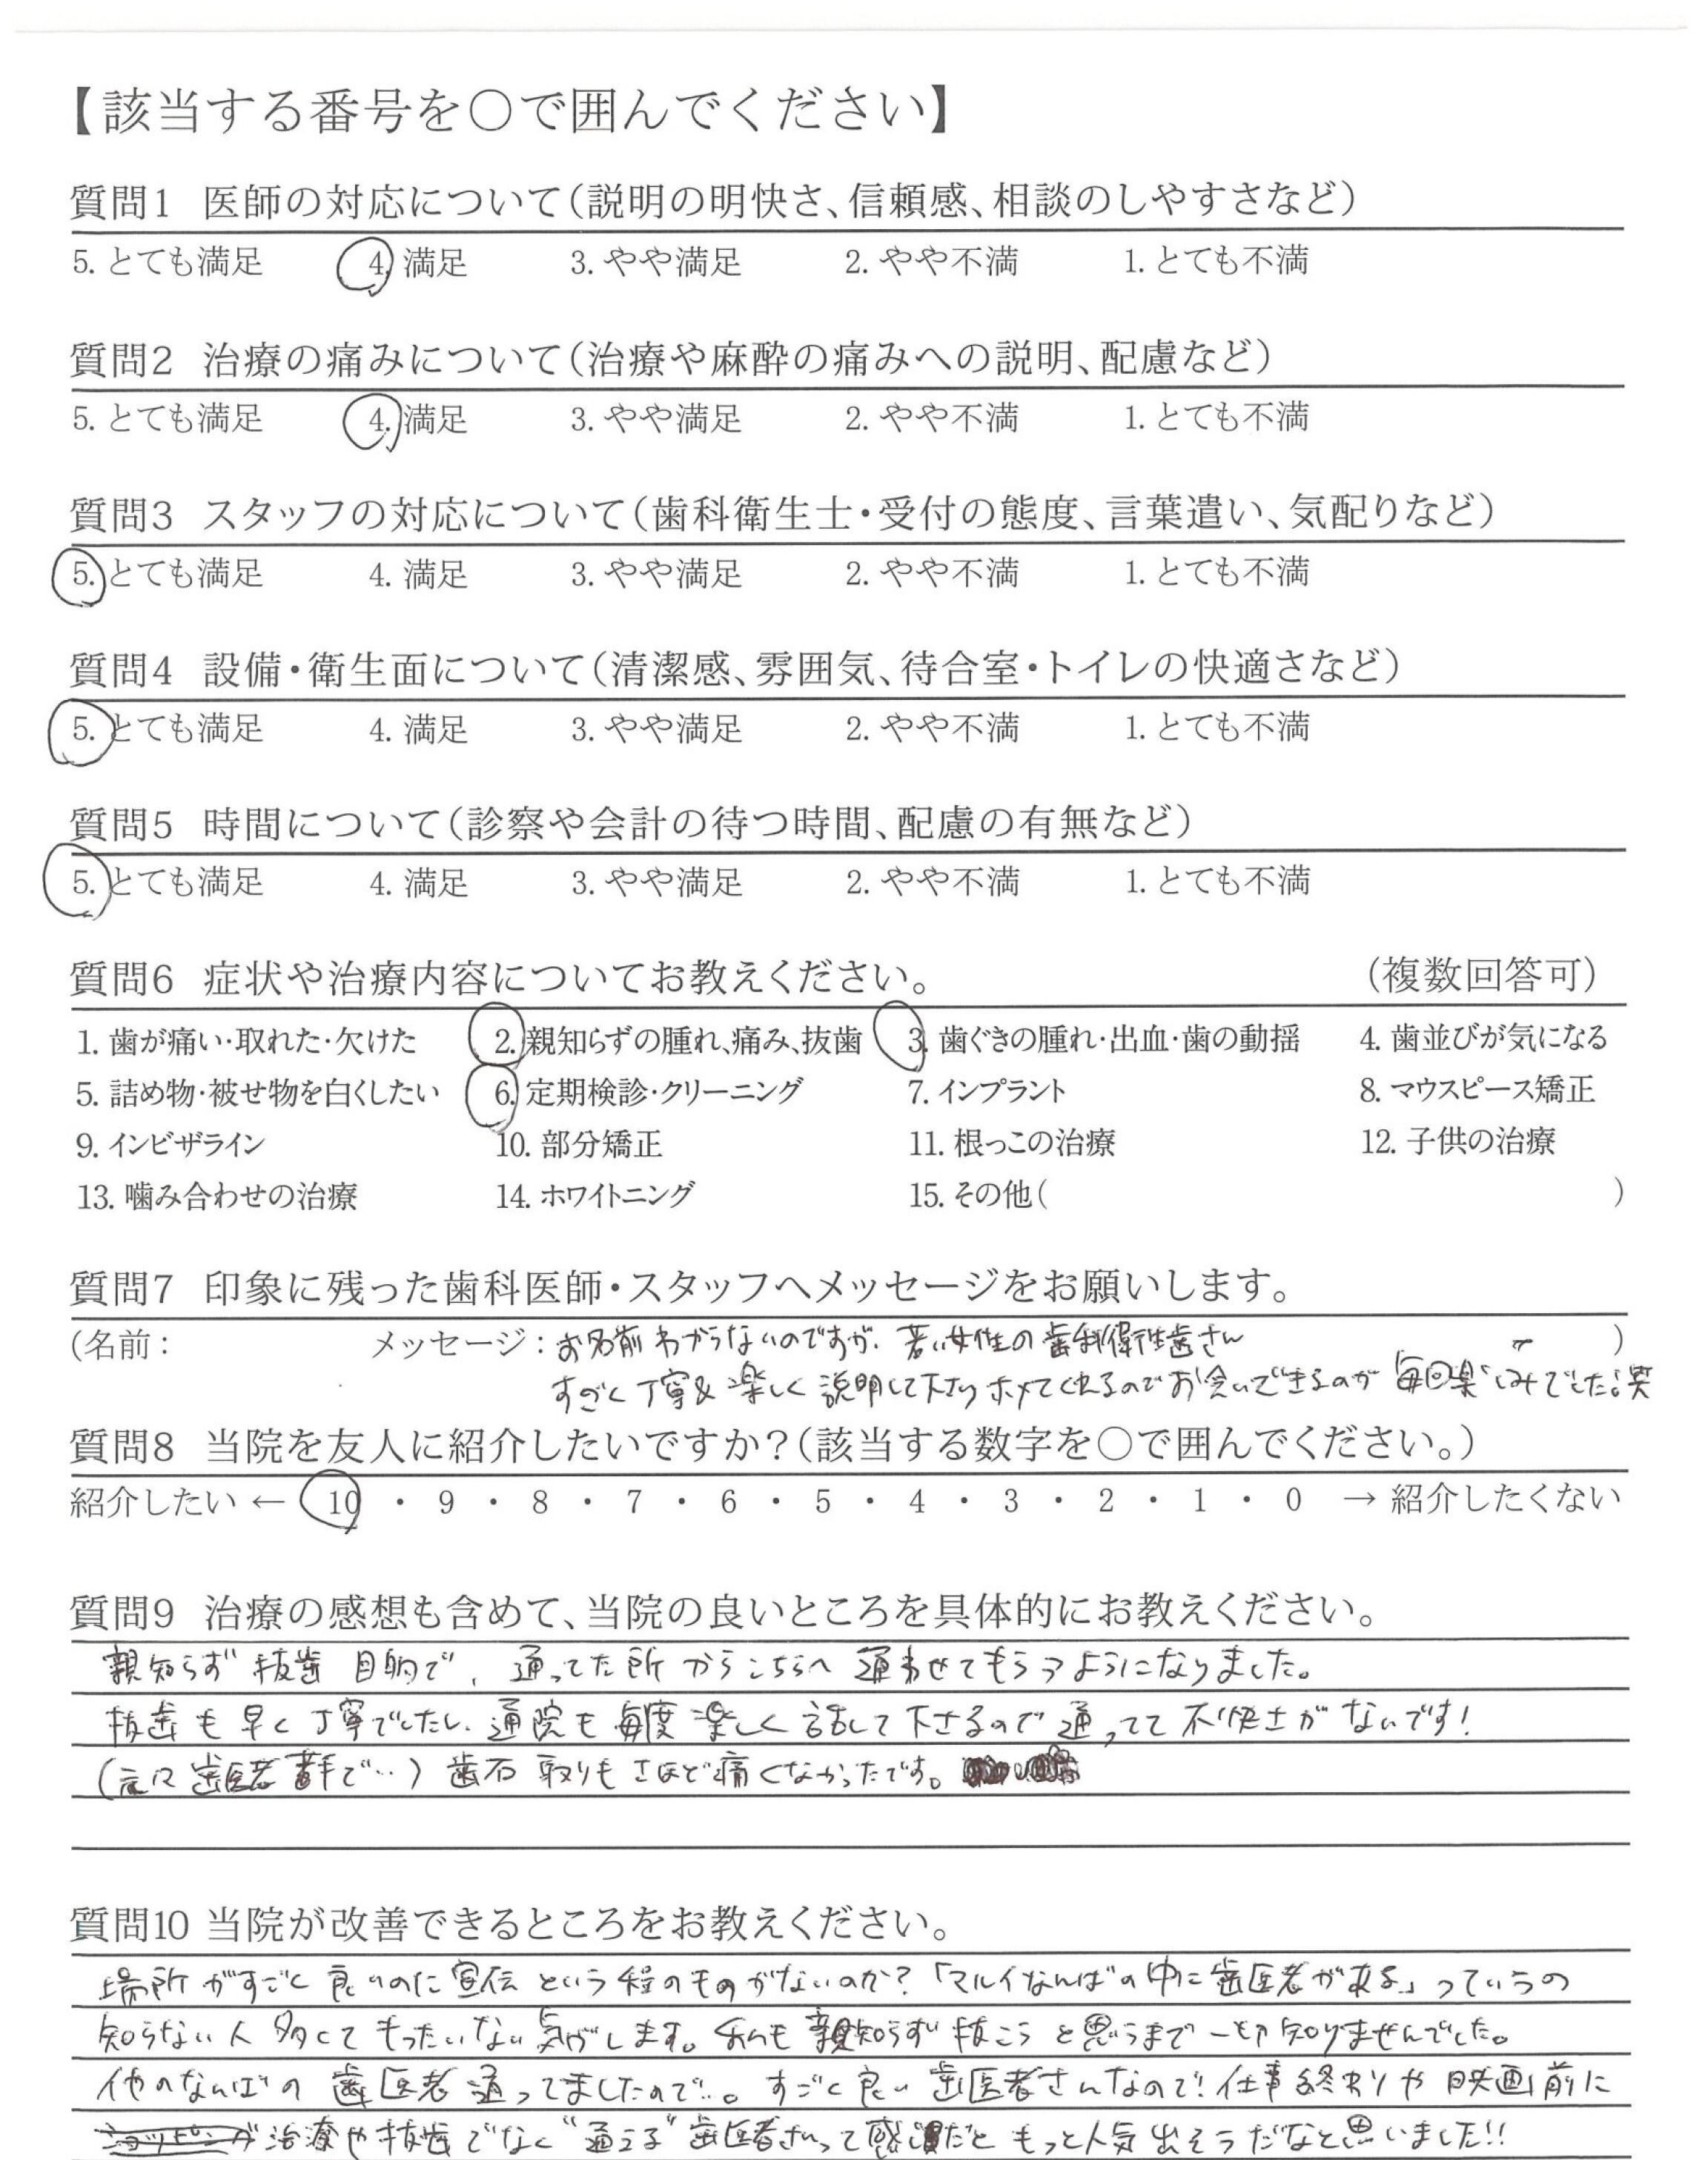 【該当する番号を○で囲んでください】
質問1 医師の対応について(説明の明快さ、信頼感、相談のしやすさなど)
5. とても満足 4. 満足 3. やや満足 2. やや不満 1. とても不満
質問2 治療の痛みについて(治療や麻酔の痛みへの説明、配慮など)
5. とても満足 4. 満足 3. やや満足 2. やや不満 1. とても不満
質問3 スタッフの対応について(歯科衛生士・受付の態度、言葉遣い、気配りなど)
5. とても満足 4. 満足 3. やや満足 2. やや不満 1. とても不満
質問4 設備・衛生面について(清潔感、雰囲気、待合室・トイレの快適さなど)
5. とても満足 4. 満足 3. やや満足 2. やや不満 1. とても不満
質問5 時間について(診察や会計の待つ時間、配慮の有無など)
5. とても満足 4. 満足 3. やや満足 2. やや不満 1. とても不満
質問6 症状や治療内容についてお教えください。 (複数回答可)
1. 歯が痛い・取れた・欠けた 2. 親知らずの腫れ、痛み、抜歯 3. 歯ぐきの腫れ・出血・歯の動揺 4. 歯並びが気になる
5. 詰め物・被せ物を白くしたい 6. 定期検診・クリーニング 7. インプラント 8. マウスピース矯正
9. インビザライン 10. 部分矯正 11. 根っこの治療 12. 子供の治療
13. 噛み合わせの治療 14. ホワイトニング 15. その他( )
質問7 印象に残った歯科医師・スタッフへメッセージをお願いします。
(名前: メッセージ:お名前わからないのですが、若い女性の歯科衛生歯さん )
すごく丁寧&楽しく説明して下さりホメてくれるのでお会いできるのが毎回楽しみでした笑
質問8 当院を友人に紹介したいですか?(該当する数字を○で囲んでください。)
紹介したい ← 10 ・ 9 ・ 8 ・ 7 ・ 6 ・ 5 ・ 4 ・ 3 ・ 2 ・ 1 ・ 0 → 紹介したくない
質問9 治療の感想も含めて、当院の良いところを具体的にお教えください。
親知らず抜歯目的で、通ってた所からこちらへ通わせてもらうようになりました。
抜歯も早く丁寧でしたし、通院も毎度楽しく話して下さるので通ってて不快士がないです!
(元々歯医者苦手で‥)歯石取りもさほど痛くなかったです。
質問10 当院が改善できるところをお教えください。
場所がすごく良いのに宣伝という程のものがないのか?「マルイなんばの中に歯医者がある」っていうの
知らない人多くてもったいない気がします。私も親知らず抜こうと思うまで一切知りませんでした。
他のなんばの歯医者通ってましたので‥。すごく良い歯医者さんなので!仕事終わりや映画前に
ショッピングが治療や抜歯でなく"通える"歯医者さんって感じだともっと人気出そうだなと思いました!!